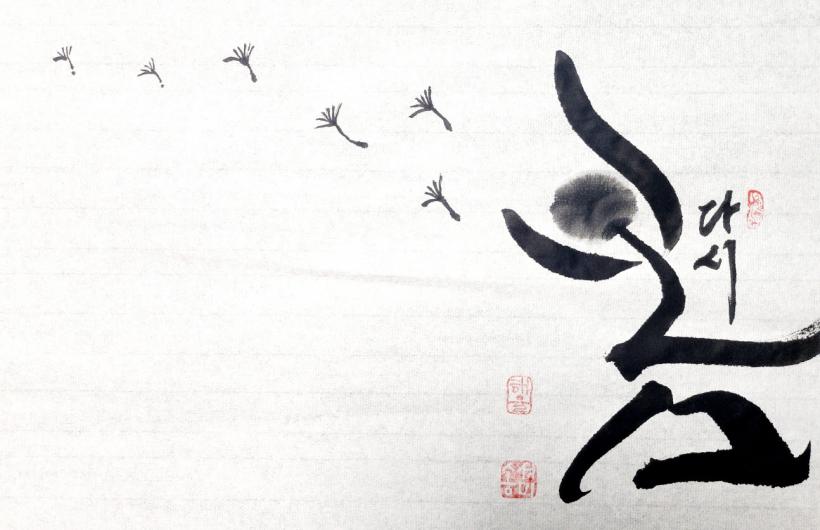 다시
봄